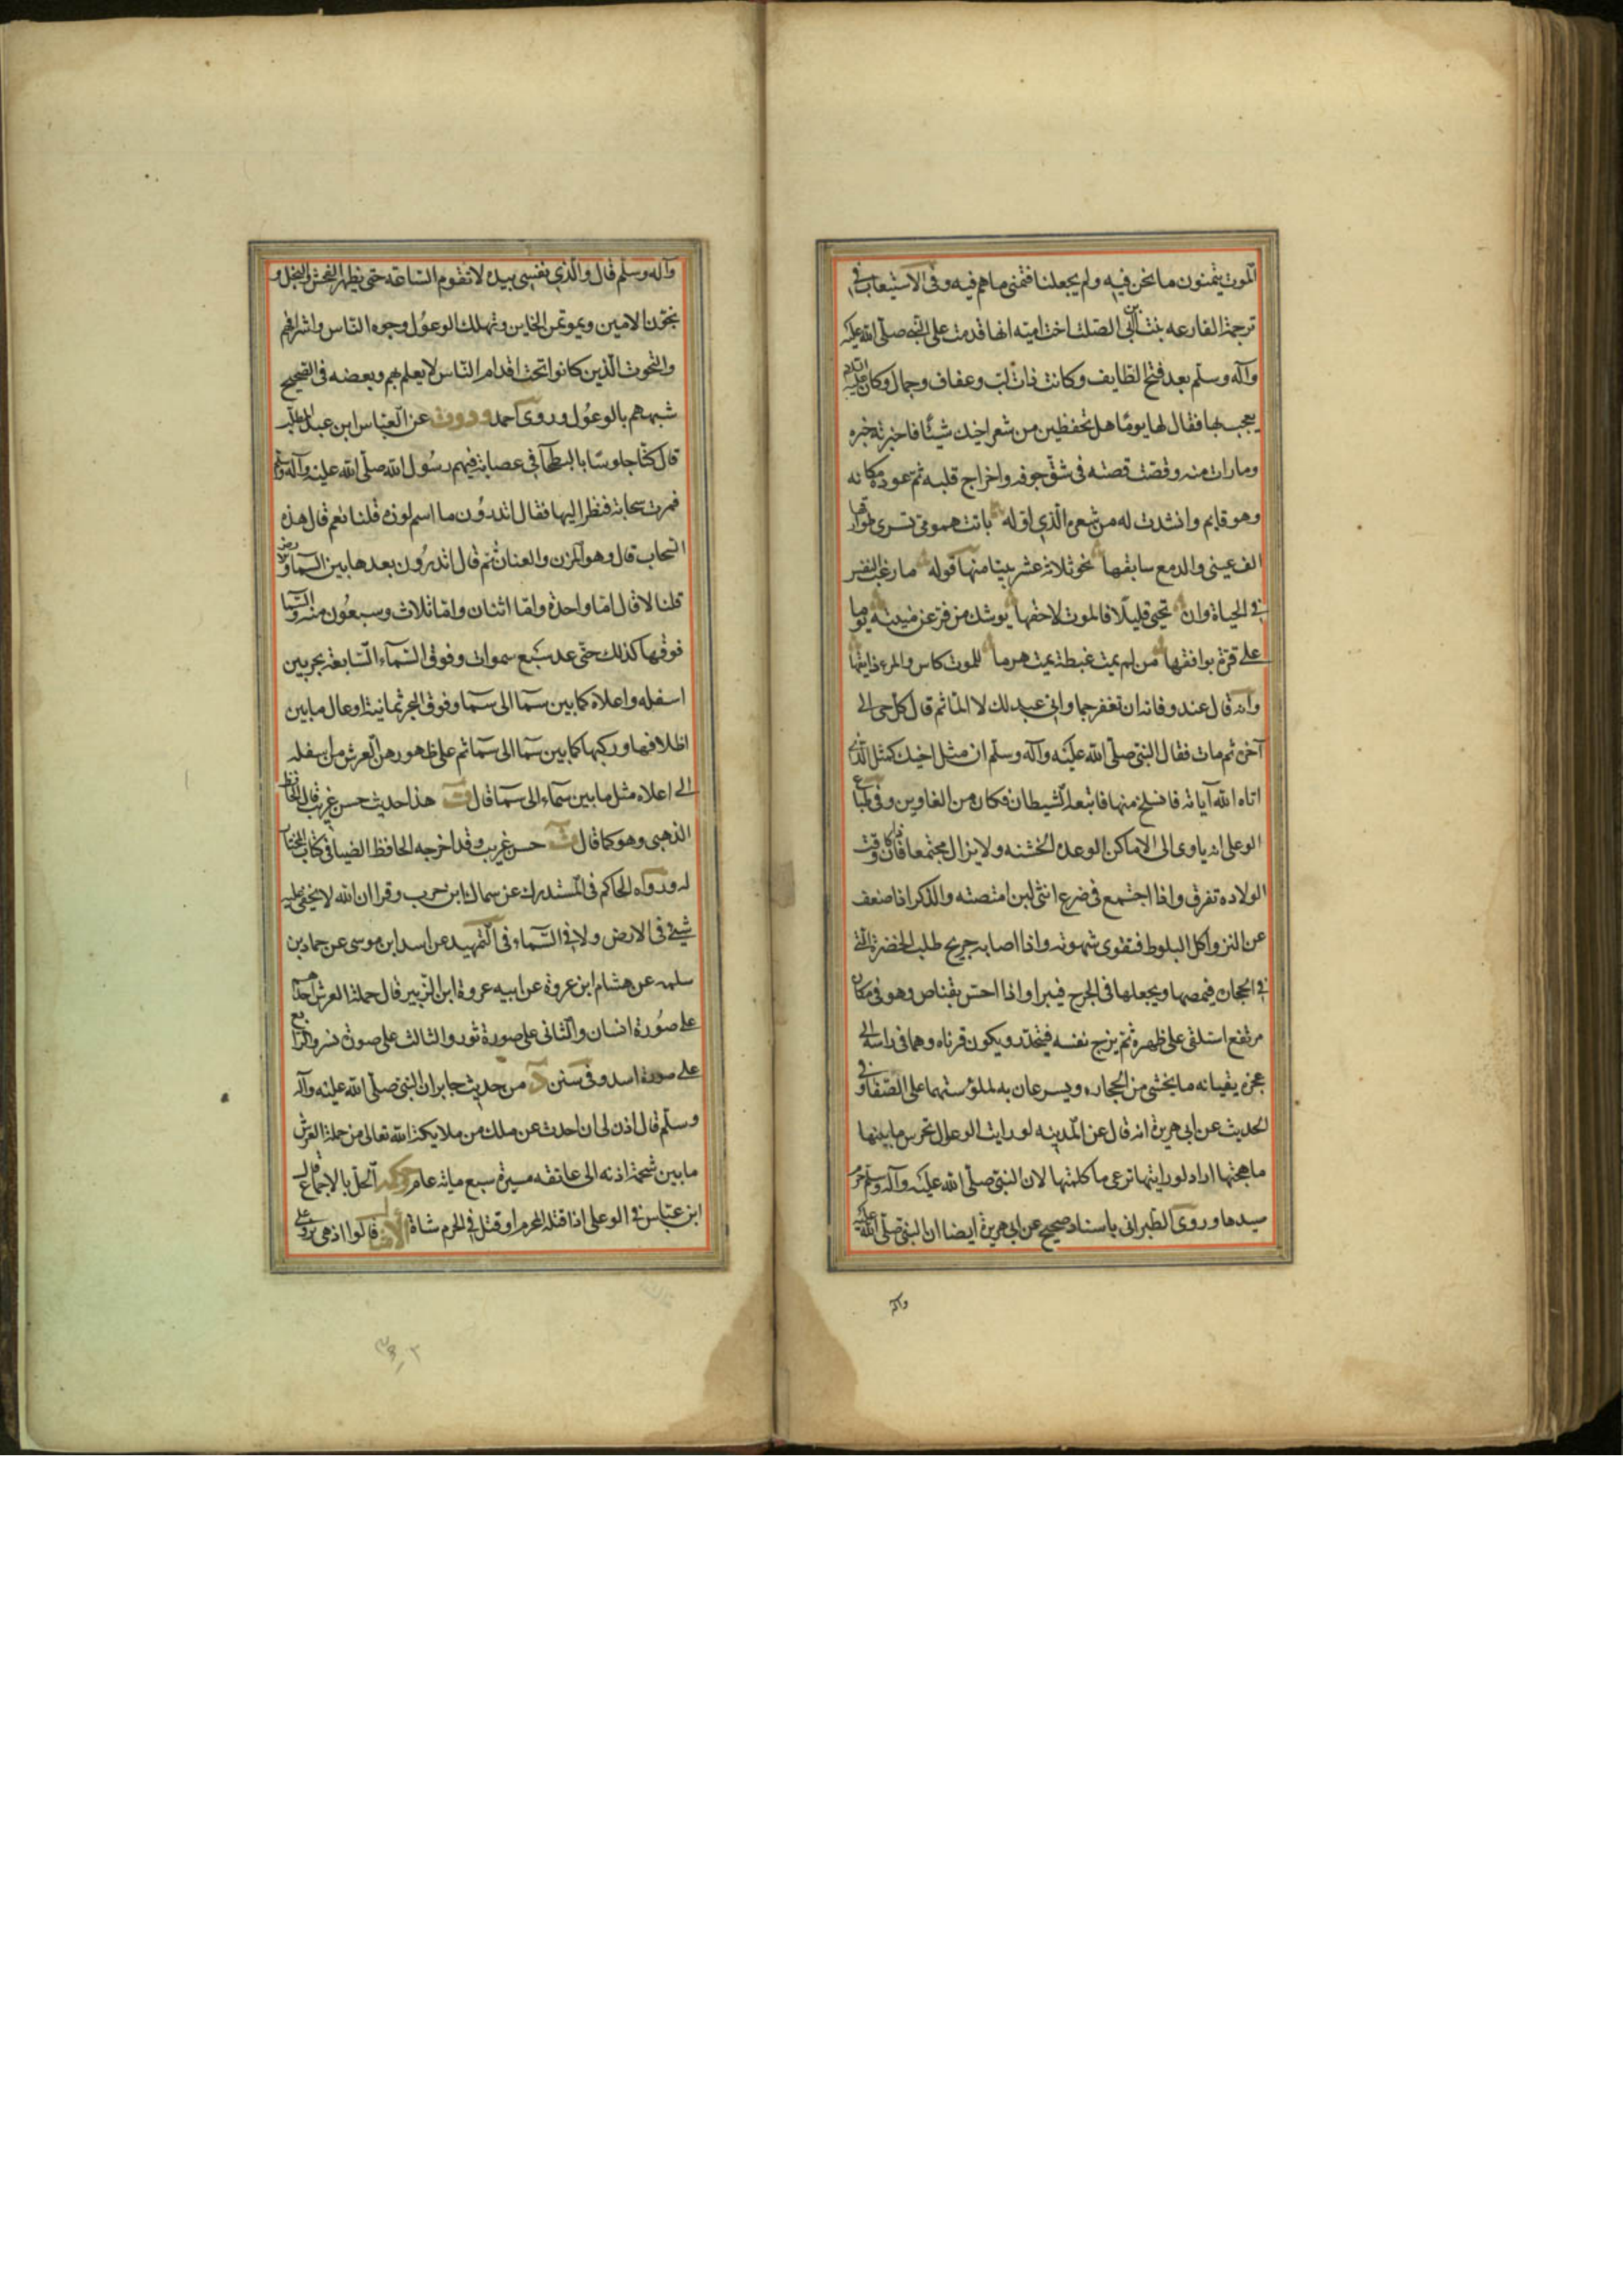 الموت يتمنون ما نحن فيه ولم يجعلنا فتمنى ما هم فيه وفى الاستيعاب فى
ترجمة الفارعه بنت ابى الصلت اخت اميه انها قدمت على النبى صلى الله عليه
وآله وسلم بعد فتح الطايف وكانت ذات لب وعفاف وجمال وكان عليه السلم
يعجب بها فقال لها يوما هل تحفظين من شعر اخيك شيئا فاخبرته خبره
وما رات منه وقصت قصته فى شق جوفه واخراج قلبه ثم عوده مكانه
وهو قايم وانشدت له من شعره الذى اوله باتت همومى تسرى طوارقها
الف عينى والدمع سابقها نحو ثلاثة عشر بيتا منها قوله ما رغب النفس
فى الحياة وان تحيى قليلا فالموت لاحقها يوشك من فر عن منيته يوما
على قرة يوافقها من لم يمت غبطة يمت هرما للموت كاس والمرء ذايقها
وانه قال عند وفاته ان تغفر جما واى عبد لك لا الما ثم قال كل حى الى
آخره ثم مات فقال النبى صلى الله عليه وآله وسلم ان مثل اخيك كمثل الذى
اتاه الله آياته فانسلخ منها فاتبعه الشيطان فكان من الغاوين وفى طباع
الوعل انه ياوى الى الاماكن الوعده الخشنه ولا يزال مجتمعا فاذا كان وقت
الولاده تفرق واذا اجتمع فى ضرع انثى لبن امتصته والذكر اذا ضعف
عن النزو اكل البلوط فتقوى شهوته واذا اصابه جريح طلب الخضرة التى
فى الحجاره فيمصها ويجعلها فى الجرح فيبرا واذا احس بقناص وهو فى مكان
مرتفع استلقى على ظهره ثم يزج نفسه فينحدر ويكون قرناه وهما فى راسه الى
عجزه يقيانه ما يخشى من الحجاره ويسرعان به لملوستهما على الصفا وفى
الحديث عن ابى هريرة انه قال عن المدينه لو رايت الوعول تحرس ما بينها
ما هجتها اراد لو رايتها ترعى ما كلمتها لان النبى صلى الله عليه وآله وسلم حرم
صيدها وروى الطبرانى باسناد صحيح عن ابى هريرة ايضا ان النبى صلى الله عليه
وآله
وآله وسلم قال والذى نفسى بيده لا تقوم الساعة حتى يظهر الفحش والبخل و
يخون الامين ويموتمن الخاين وتهلك الوعول وجوه الناس واشرافهم
والتحوت الذين كانوا تحت اقدام الناس لا يعلم بهم وبعضه فى الصحيح
شبههم بالوعول وروى احمد عن العباس ابن عبد المطلب
قال كنا جلوسا بالبطحآ فى عصابة فيهم رسول الله صلى الله عليه وآله وسلم
فمرت سحابة فنظر اليها فقال اتدرون ما اسم لهذه قلنا نعم قال هذه
السحاب قال وهو المزن والعنان ثم قال اتدرون بعد ما بين السما والارض
قلنا لا قال اما واحدة واما اثنان واما ثلاث وسبعون منه والسما
فوقها كذلك حتى عد سبع سموات وفوق السماء السابعة بحر بين
اسفله واعلاه كما بين سما الى سما وفوق البحر ثمانية اوعال ما بين
اظلافها وركبها كما بين سما الى سما ثم على ظهورهن العرش من اسفله
الى اعلاه مثل ما بين سماء الى سما قال ت هذا حديث حسن غريب قال الحافظ
الذهبى وهو كما قال ت حسن غريب وقد اخرجه الحافظ الضيا فى كتاب المختار
له ورواه الحاكم فى المستدرك عن سماك ابن حرب وقرا ان الله لا يخفى عليه
شيئ فى الارض ولا فى السماء وفى التمهيد عن اسد ابن موسى عن حماد بن
سلمه عن هشام ابن عروة عن ابيه عروة ابن الزبير قال حملة العرش احدهم
على صورة انسان والثانى على صورة ثور والثالث على صورة نسر والرابع
على صورة اسد وفى سنن د من حديث جابر ان النبى صلى الله عليه وآله
وسلم قال اذن لى ان احدث عن ملك من ملايكة الله تعالى من حملة العرش
ما بين شحمة اذنه الى عاتقه مسيرة سبع مياته عام وحكمه الحل بالاجماع قال
ابن عباس فى الوعل اذا قتله المحرم او قتل فى الحرم شاة الامثال قالوا اذهى من وعل